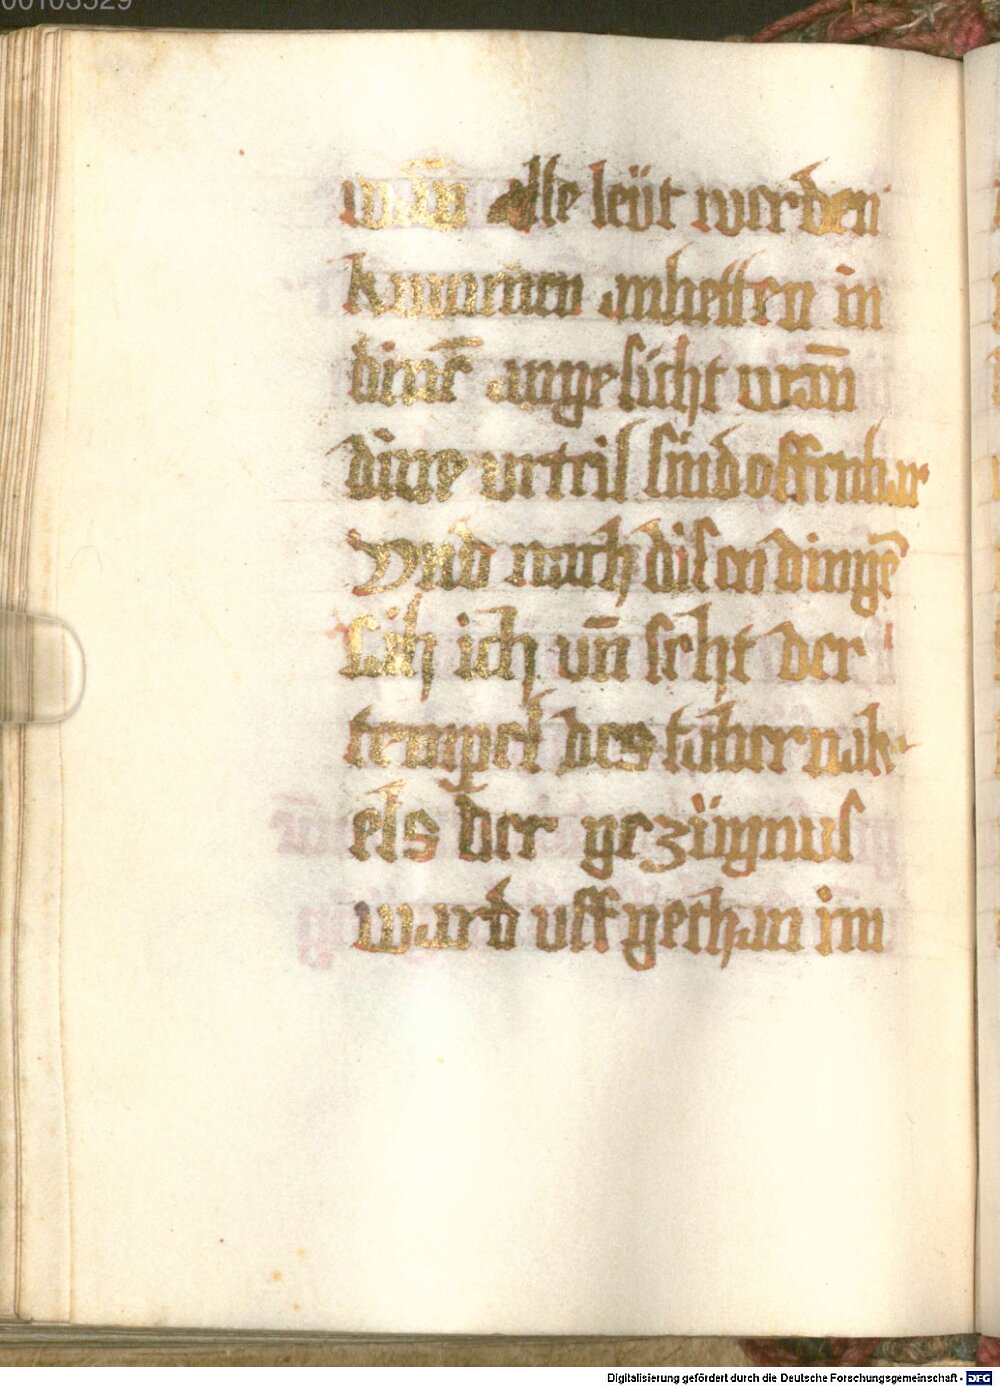 00103529
wān alle leüt werden
kummen anbetten in
diner̄ angesicht wān
dine vrteil sind offenbar
Vnd nach disen dingē
sih ich vn̄ seht der
tempel des tabernak-
els der gezügnus
ward uff gethan im
Digitalisierung gefördert durch die Deutsche Forschungsgemeinschaft - DFG